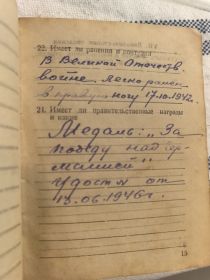 22. Имеет ли ранения и контузии
В Великой Отечеств.
войне легко ранен
в правую ногу 17.10.1942.
21. Имеет ли правительственные награды
и какие
Медаль: „За
победу над Гер-
манией"
удост. от
13.06.1946г.
19